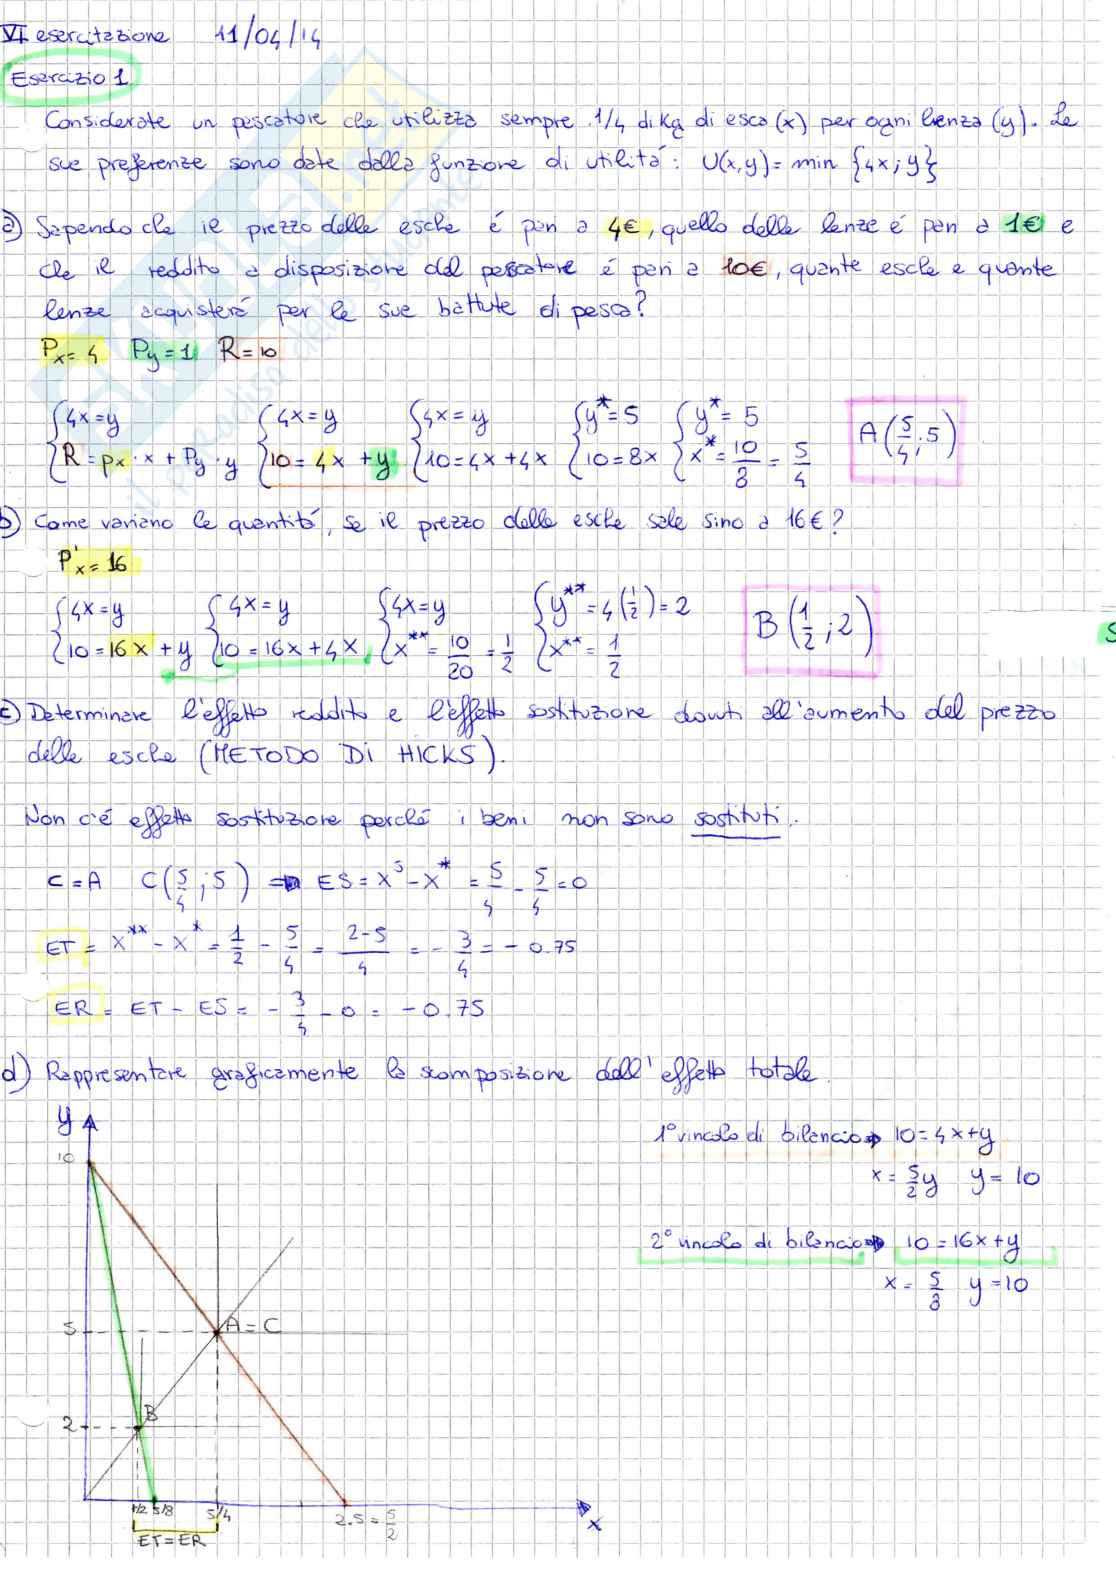 VI esercitazione 11/04/14
Esercizio 1
Considerate un pescatore che utilizza sempre 1/4 di Kg di esca (x) per ogni lenza (y). Le
sue preferenze sono date dalla funzione di utilità: U(x,y) = min {4x; y}
a) Sapendo che il prezzo delle esche é pari a 4€, quello delle lenze é pari a 1€ e
che il reddito a disposizione del pescatore é pari a 10€, quante esche e quante
lenze acquisterá per le sue battute di pesca?
Px = 4 Py = 1 R = 10
{4x = y {4x = y {4x = y {y* = 5 {y* = 5
{R = px · x + Py · y {10 = 4x + y {10 = 4x + 4x {10 = 8x {x* = 10/8 = 5/4 A (5/4; 5)
b) Come variano le quantitá, se il prezzo delle esche sale sino a 16€?
P'x = 16
{4x = y {4x = y {4x = y {y** = 4 (1/2) = 2
{10 = 16x + y {10 = 16x + 4x {x** = 10/20 = 1/2 {x** = 1/2 B (1/2; 2)
S
c) Determinare l'effetto reddito e l'effetto sostituzione dovuti all'aumento del prezzo
delle esche (METODO DI HICKS).
Non c'é effetto sostituzione perché i beni non sono sostituti.
C = A C (5/4; 5) => ES = xˢ - x* = 5/4 - 5/4 = 0
ET = x** - x* = 1/2 - 5/4 = 2-5/4 = - 3/4 = - 0.75
ER = ET - ES = - 3/4 - 0 = - 0.75
d) Rappresentare graficamente la scomposizione dell'effetto totale.
y
10
5
2
A = C
B
1/2 5/8 5/4 2.5 = 5/2
x
ET = ER
1° vincolo di bilancio => 10 = 4x + y
x = 5/2 y y = 10
2° vincolo di bilancio => 10 = 16x + y
x = 5/8 y = 10